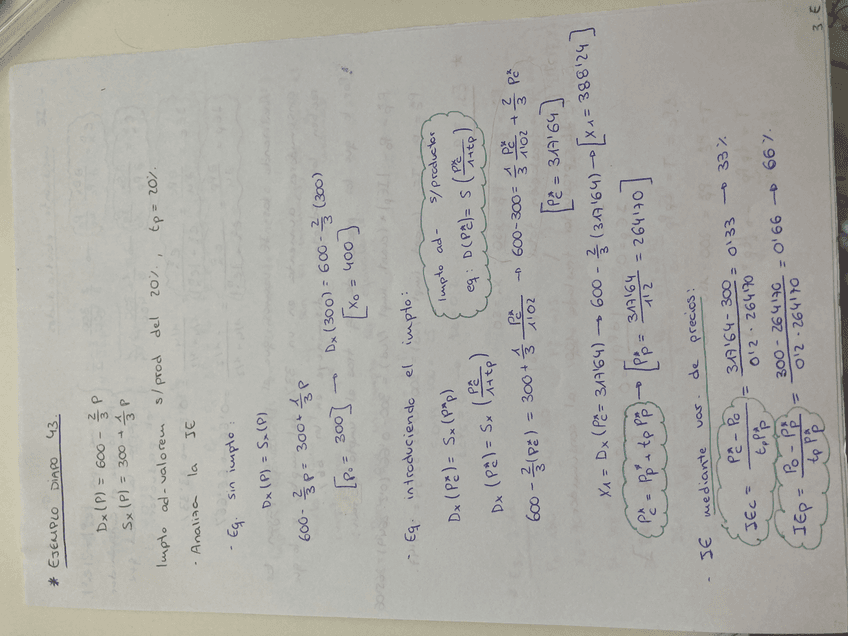 * EJEMPLO DIAPO 43.
Dx (P) = 600 - 2/3 P
Sx (P) = 300 + 1/3 P
Impto ad-valorem s/prod del 20%, tp = 20%.
· Analiza la IE
- Eq. sin impto:
Dx (P) = Sx (P)
600 - 2/3 P = 300 + 1/3 P
[P0 = 300] → Dx (300) = 600 - 2/3 (300)
[X0 = 400]
- Eq. introduciendo el impto:
Impto ad- s/productor
eq: D(Pc*) = S (Pc*/1+tp)
Dx (Pc*) = Sx (Pp*)
Dx (Pc*) = Sx (Pc*/1+tp)
600 - 2/3 (Pc*) = 300 + 1/3 Pc*/1'02 → 600 - 300 = 1/3 Pc*/1'02 + 2/3 Pc*
[Pc* = 317'64]
X1 = Dx (Pc* = 317'64) → 600 - 2/3 (317'64) → [X1 = 388'24]
Pc* = Pp* + tp Pp* → [Pp* = 317'64/1'2 = 264'70]
- IE mediante var. de precios:
IEc = Pc* - P0/tp Pp* = 317'64 - 300/0'2 · 264'70 = 0'33 → 33%
IEp = P0 - Pp*/tp Pp* = 300 - 264'70/0'2 · 264'70 = 0'66 → 66%.